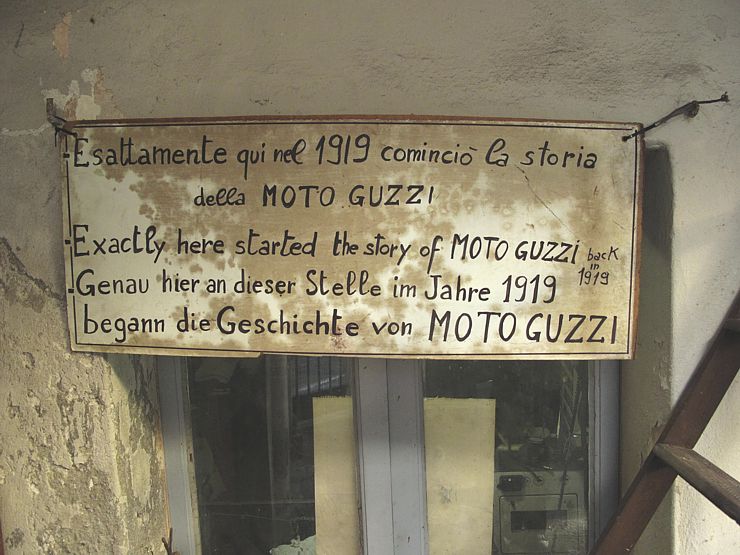 -Esattamente qui nel 1919 cominciò la storia
della MOTO GUZZI
-Exactly here started the story of MOTO GUZZI back in 1919
-Genau hier an dieser Stelle im Jahre 1919
begann die Geschichte von MOTO GUZZI